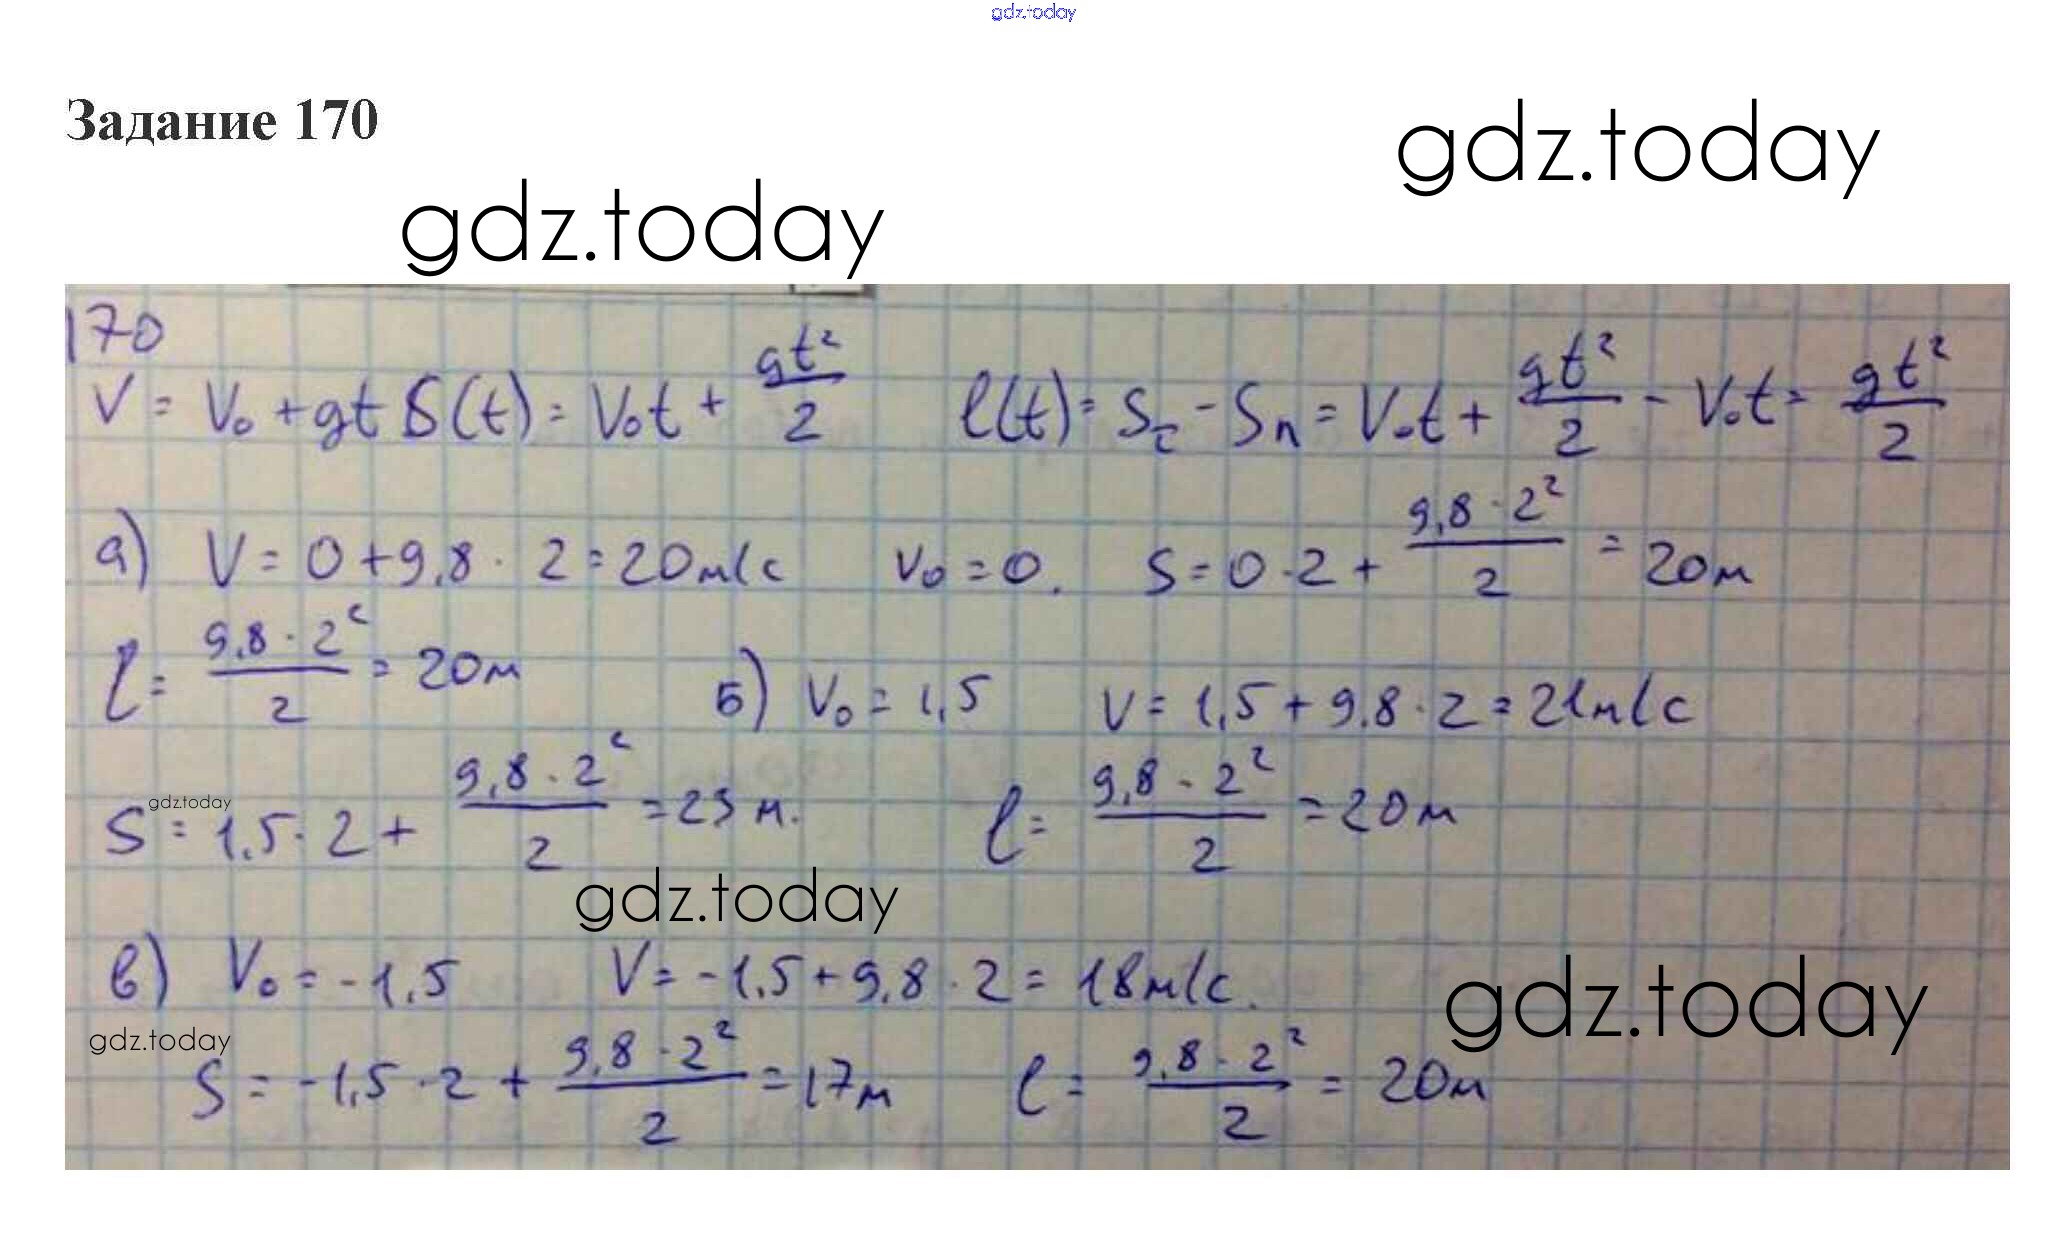 gdz.today
Задание 170
gdz.today
gdz.today
170
V = V₀ + gt S(t) = V₀t + gt²/2 l(t) = Sc - Sп = V₀t + gt²/2 - V₀t = gt²/2
а) V = 0 + 9,8 · 2 = 20м/с V₀ = 0. S = 0 · 2 + 9,8 · 2²/2 = 20м
l = 9,8 · 2²/2 = 20м Б) V₀ = 1,5 V = 1,5 + 9.8 · 2 = 21м/с
S = 1,5 · 2 + 9,8 · 2²/2 = 23 м. l = 9,8 · 2²/2 = 20м
gdz.today
gdz.today
в) V₀ = -1,5 V = -1,5 + 9,8 · 2 = 18м/с.
gdz.today
gdz.today
S = -1,5 · 2 + 9,8 · 2²/2 = 17м l = 9,8 · 2²/2 = 20м